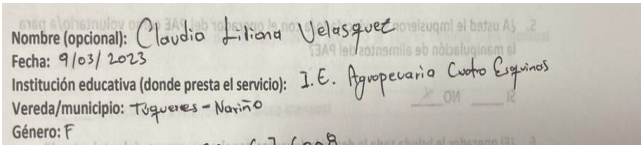 Nombre (opcional): Claudia Liliana Velasquez
Fecha: 9/03/2023
Institución educativa (donde presta el servicio): I.E. Agropecuaria Cuatro Esquinas
Vereda/municipio: Túqueres - Nariño
Género: F